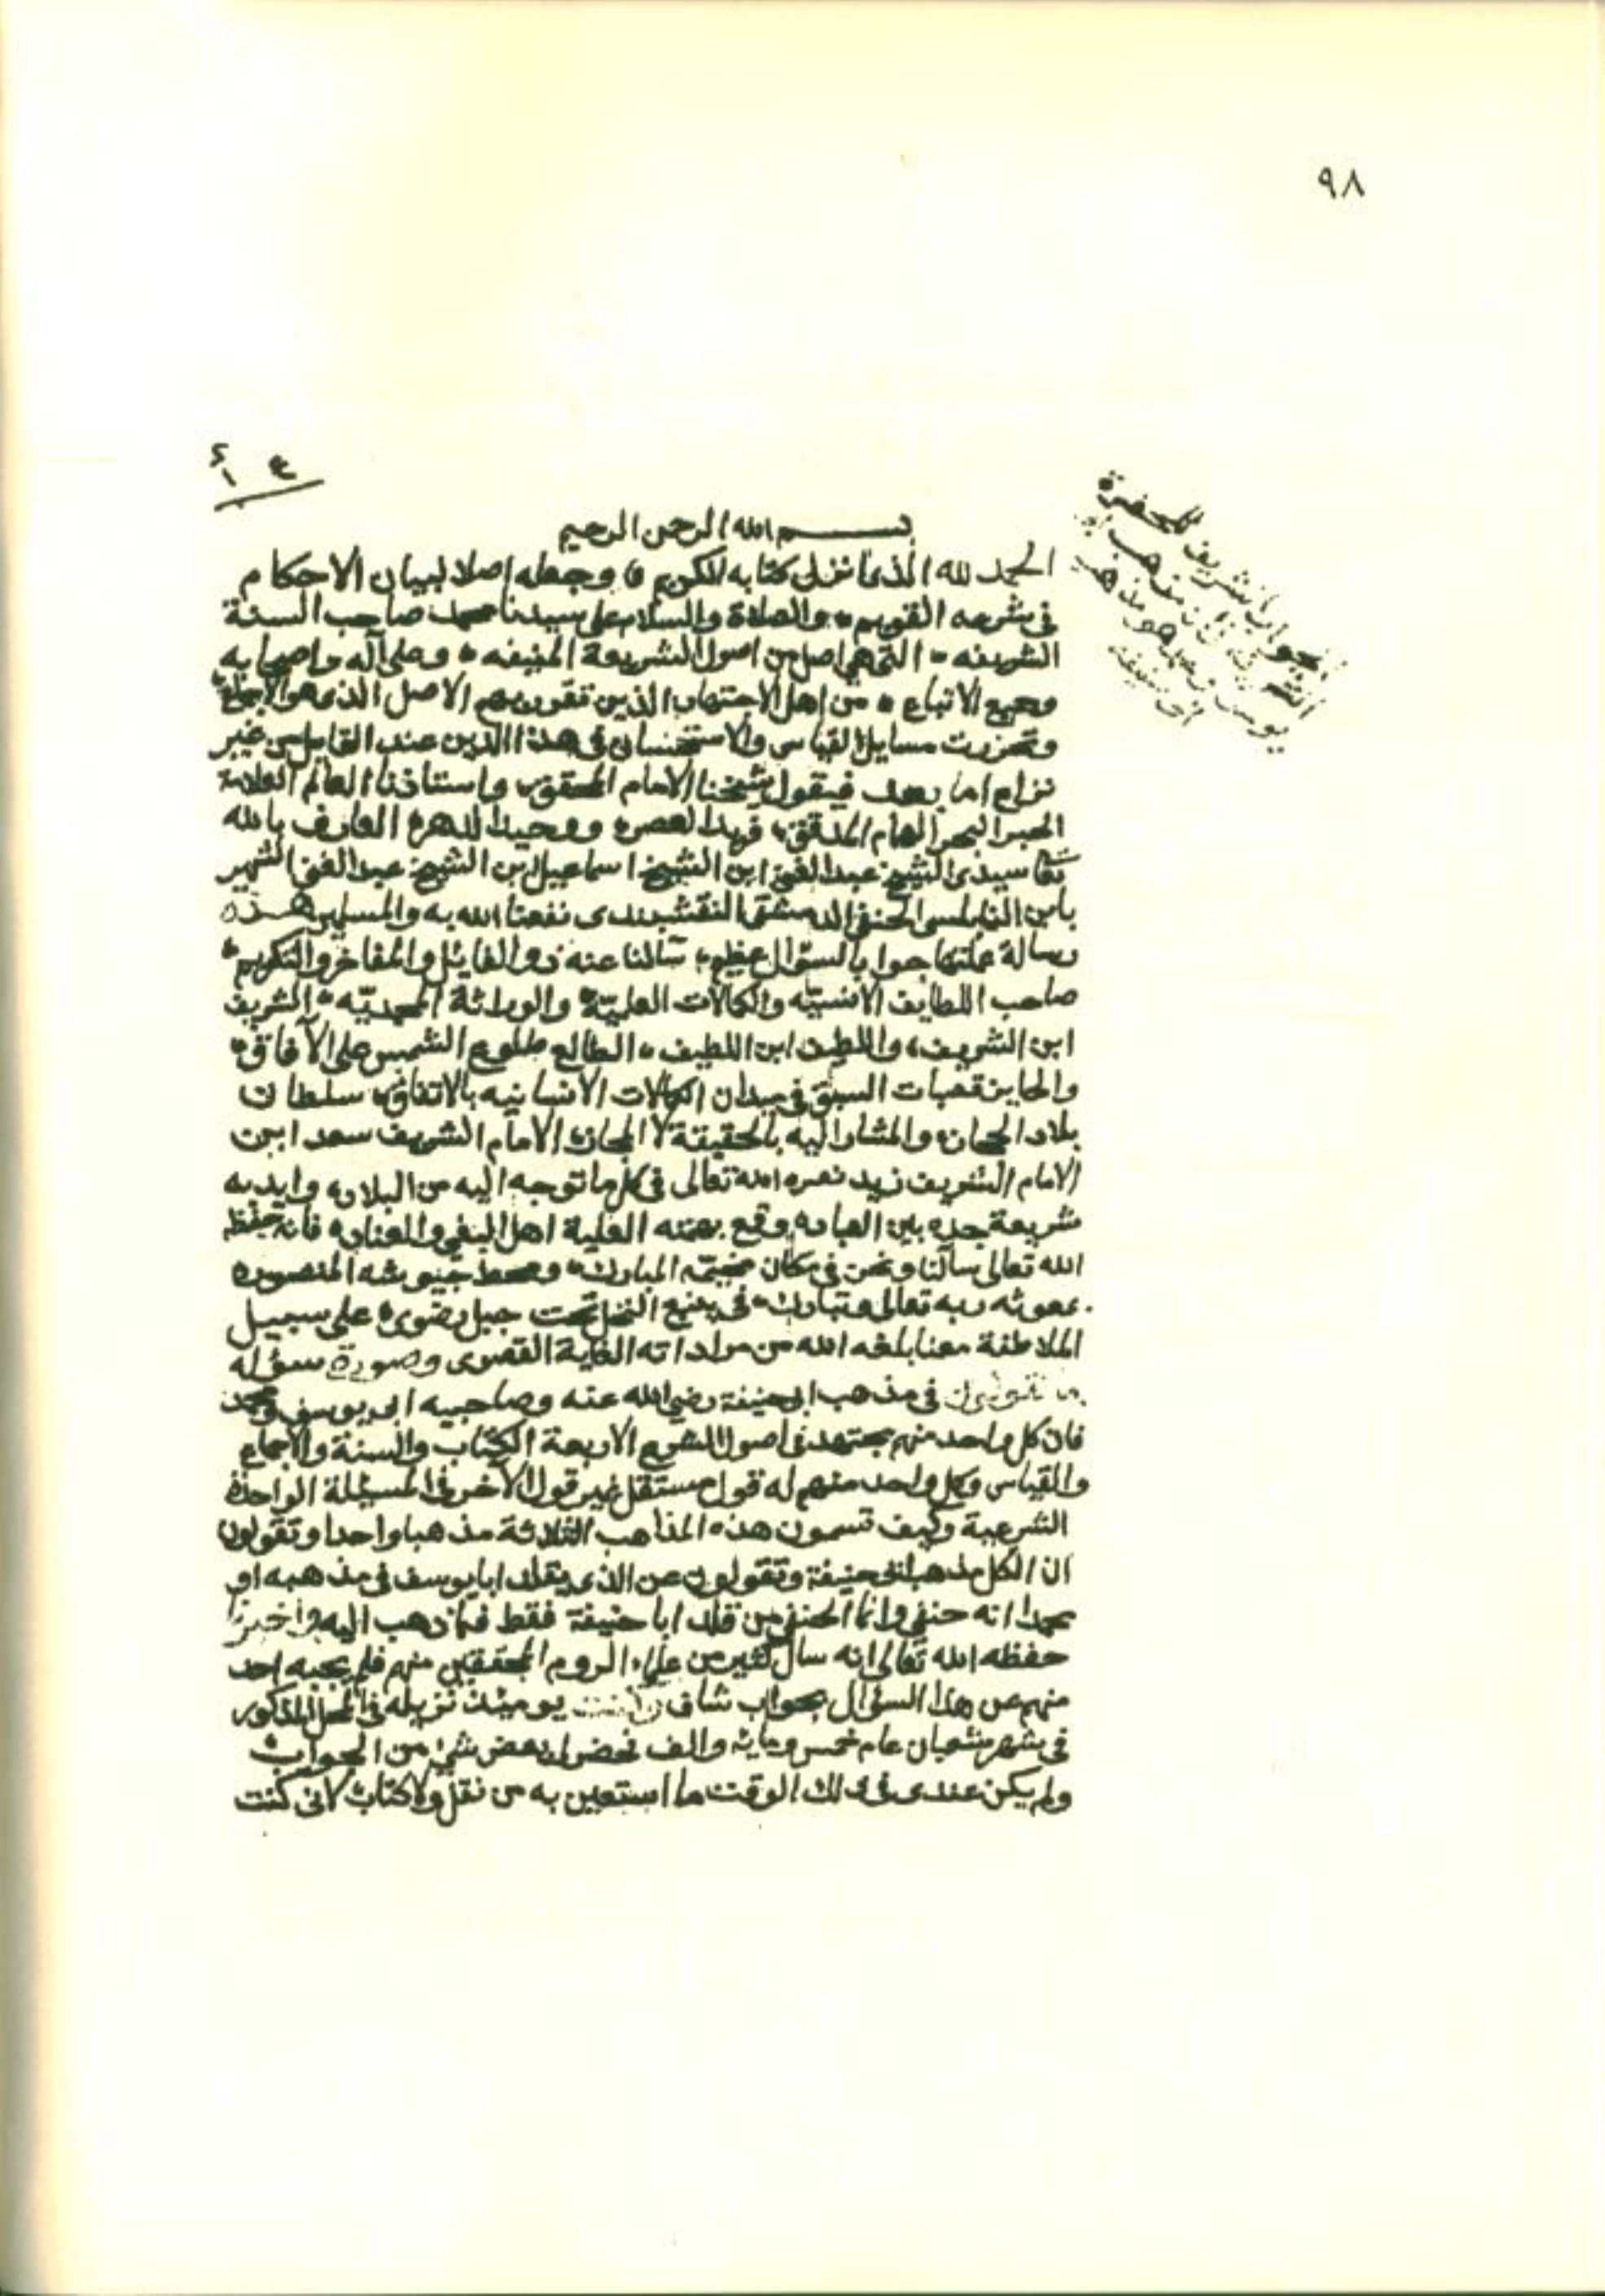 ٩٨
الجواب الشريف للحضرة
الشريفة في ان مذهب ابي
يوسف ومحمد هو مذهب
ابي حنيفة
بسم الله الرحمن الرحيم
الحمد لله الذي انزل كتابه الكريم وجعله اصلا لبيان الاحكام
في شرعه القويم والصلاة والسلام على سيدنا محمد صاحب السنة
الشريفه التي هي اصل من اصول الشريعة المنيفه وعلى آله واصحابه
وجميع الاتباع من اهل الاجتهاد الذين تقرر بهم الاصل الذي هو الاجماع
وتحررت مسايل القياس والاستحسان في هذا الدين عند القايلين من غير
نزاع اما بعد فيقول شيخنا الامام المحقق واستاذنا العالم العلامة
الحبر البحر الهمام المدقق فريد العصر ووحيد الدهر العارف بالله
تعا سيدي الشيخ عبد الغني ابن الشيخ اسماعيل ابن الشيخ عبد الغني الشهير
بابن النابلسي الحنفي الدمشقي النقشبندي نفعنا الله به والمسلمين هذه
رسالة عملتها جوابا لسؤال عظيم سألنا عنه ذو الفايئل والمفاخر والتكريم
صاحب اللطايف الانسيّه والكمالات العليّة والوراثة المحمديّه الشريف
ابن الشريف واللطيف ابن اللطيف الطالع طلوع الشمس على الآفاق
والحايز قصبات السبق في ميدان الكمالات الانسانيه بالاتفاق سلطان
بلاد الحجاز والمشار اليه بالحقيقة لا المجاز الامام الشريف سعد ابن
الامام الشريف زيد نصره الله تعالى في كل ما توجه اليه من البلاد وايد به
شريعة جده بين العباد وقمع بهمته العلية اهل البغي والعناد فانه حفظه
الله تعالى سألنا ونحن في مكان مخيّمه المبارك ومحط جيوشه المنصوره
بمعونة ربه تعالى وتبارك في ينبع النخل تحت جبل رضوى على سبيل
الملاطفة معنا بلغه الله من مراداته الغاية القصوى وصورة سؤاله
ما تقولون في مذهب ابي حنيفة رضي الله عنه وصاحبيه ابي يوسف ومحمد
فان كل واحد منهم مجتهد في اصول الشرع الاربعة الكتاب والسنة والاجماع
والقياس وكل واحد منهم له قول مستقل غير قول الآخر في المسئلة الواحدة
الشرعية وكيف تسمون هذه المذاهب الثلاثة مذهبا واحدا وتقولون
ان الكل مذهب ابي حنيفة وتقولون عن الذي يقلد ابا يوسف في مذهبه او
محمدا انه حنفي وانما الحنفي من قلد ابا حنيفة فقط فيما ذهب اليه واخبرنا
حفظه الله تعالى انه سال كثير من علماء الروم المحققين منهم فلم يجبه احد
منهم عن هذا السؤال بجواب شاف وكنت يومئذ نزيله في المحل المذكور
في شهر شعبان عام خمس وماية والف فحضرني بعض شئ من الجواب
ولم يكن عندي في ذلك الوقت ما استعين به من نقل ولا كتاب لاني كنت